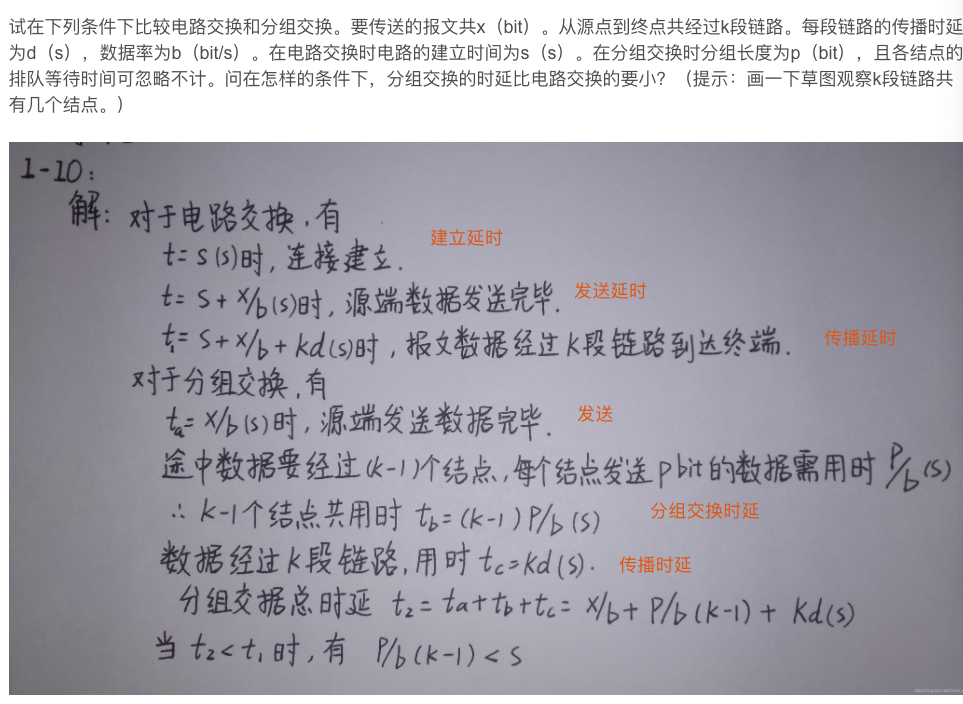 试在下列条件下比较电路交换和分组交换。要传送的报文共x（bit）。从源点到终点共经过k段链路。每段链路的传播时延
为d（s），数据率为b（bit/s）。在电路交换时电路的建立时间为s（s）。在分组交换时分组长度为p（bit），且各结点的
排队等待时间可忽略不计。问在怎样的条件下，分组交换的时延比电路交换的要小？（提示：画一下草图观察k段链路共
有几个结点。）
1-10:
解: 对于电路交换,有
建立延时
t= s (s)时, 连接建立.
t= s + x/b (s)时, 源端数据发送完毕. 发送延时
t₁= s + x/b + kd (s)时, 报文数据经过k段链路到达终端. 传播延时
对于分组交换,有
ta= x/b (s)时, 源端发送数据完毕. 发送
途中数据要经过(k-1)个结点, 每个结点发送p bit的数据需用时 P/b (s)
∴ k-1个结点共用时 tb= (k-1) P/b (s) 分组交换时延
数据经过k段链路, 用时 tc=kd (s). 传播时延
分组交据总时延 t₂= ta+tb+tc= x/b + P/b (k-1) + kd(s)
当 t₂<t₁ 时, 有 P/b (k-1) < s